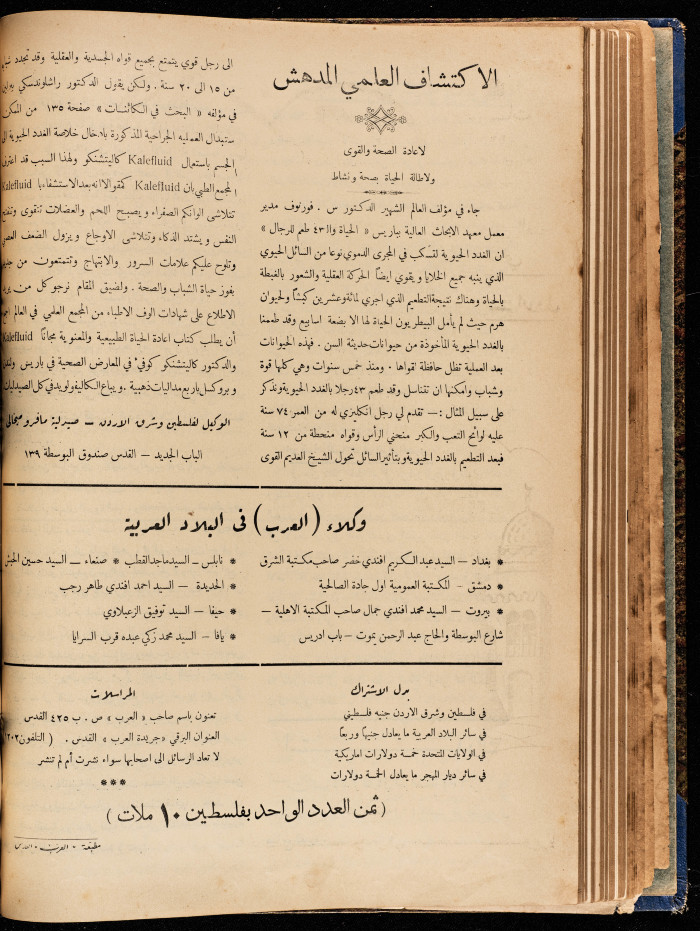 الاكتشاف العلمي المدهش
لاعادة الصحة والقوى
ولاطالة الحياة بصحة ونشاط
جاء في مؤلف العالم الشهير الدكتور س . فورنوف مدير
معمل معهد الابحاث العالية بباريس « الحياة واا ٤٣ طعم للرجال »
ان الغدد الحيوية تسكب في المجرى الدموي نوعا من السائل الحيوي
الذي ينبه جميع الخلايا ويقوي ايضاً الحركة العقلية والشعور بالغبطة
بالحياة وهناك نتيجة التطعيم الذي اجري لمائة وعشرين كبشاً ولحيوان
هرم حيث لم يأمل البيطريون الحياة لها الا بضعة اسابيع وقد طعمنا
بالغدد الحيوية المأخوذة من حيوانات حديثة السن . فهذه الحيوانات
بعد العملية تظل حافظة لقواها . ومنذ خمس سنوات وهي كلها قوة
وشباب وامكنها ان تتناسل وقد طعم ٤٣ رجلا بالغدد الحيوية ونذكر
على سبيل المثال :— تقدم لي رجل انكليزي له من العمر ٧٤ سنة
عليه لوائح التعب والكبر منحني الرأس وقواه منحطة من ١٢ سنة
فبعد التطعيم بالغدد الحيوية وبتأثير السائل تحول الشيخ العديم القوى
الى رجل قوي يتمتع بجميع قواه الجسدية والعقلية وقد تجدد
من ١٥ الى ٢٠ سنة . ولكن يقول الدكتور راشلوندسكي
في مؤلفه « البحث في الكائنات » صفحة ١٣٥ من الممكن
ستبدال العمليه الجراحية المذكورة بادخال خلاصة الغدد الحيوية الى
الجسم باستعمال Kalefluid كاليتشنكو ولهذا السبب قد اعترف
المجمع الطبي بان Kalefluid كمقوالاانه بعد الاستشفاء با Kalefluid
تتلاشى الوانكم الصفراء ويصبح اللحم والعضلات تتقوى
النفس ويشتد الذكاء وتتلاشى الاوجاع ويزول الضعف
وتلوح عليكم علامات السرور والابتهاج وتتمتعون من
بفوز حياة الشباب والصحة . ولضيق المقام نرجو كل من يريد
الاطلاع على شهادات الوف الاطباء من المجمع العلمي في العالم
أن يطلب كتاب اعادة الحياة الطبيعية والمعنوية مجاناً Kalefluid
والدكتور كاليتشنكو كوفيء في المعارض الصحية في باريس
و بروكسل باربع مداليات ذهبية . ويباع الكاليفلويد في كل الصيدليات
الوكيل لفلسطين وشرق الاردن — صيدلية مافرو ميخالي
الباب الجديد — القدس صندوق البوسطة ١٣٩
وكلاء (العرب) في البلاد العربية
* بغداد — السيد عبد الكريم افندي خضر صاحب مكتبة الشرق
* دمشق - المكتبة العمومية اول جادة الصالحية
* بيروت — السيد محمد افندي جمال صاحب المكتبة الاهلية —
شارع البوسطة والحاج عبد الرحمن يموت — باب ادريس
* نابلس — السيد ماجد القطب * صنعاء — السيد حسين
* الحديدة — السيد احمد افندي طاهر رجب
* حيفا — السيد توفيق الزعبلاوي
* يافا — السيد محمد زكي عبده قرب السرايا
بدل الاشتراك
في فلسطين وشرق الاردن جنيه فلسطيني
في سائر البلاد العربية ما يعادل جنيهاً وربعاً
في الولايات المتحدة خمسة دولارات اماريكية
في سائر ديار المهجر ما يعادل الخمسة دولارات
المراسلات
تعنون باسم صاحب « العرب » ص . ب ٤٢٥ القدس
العنوان البرقي « جريدة العرب » القدس .
لا تعاد الرسائل الى اصحابها سواء نشرت أم لم تنشر
***
( ثمن العدد الواحد بفلسطين ١٠ ملات )
مطبعة - العرب - القدس